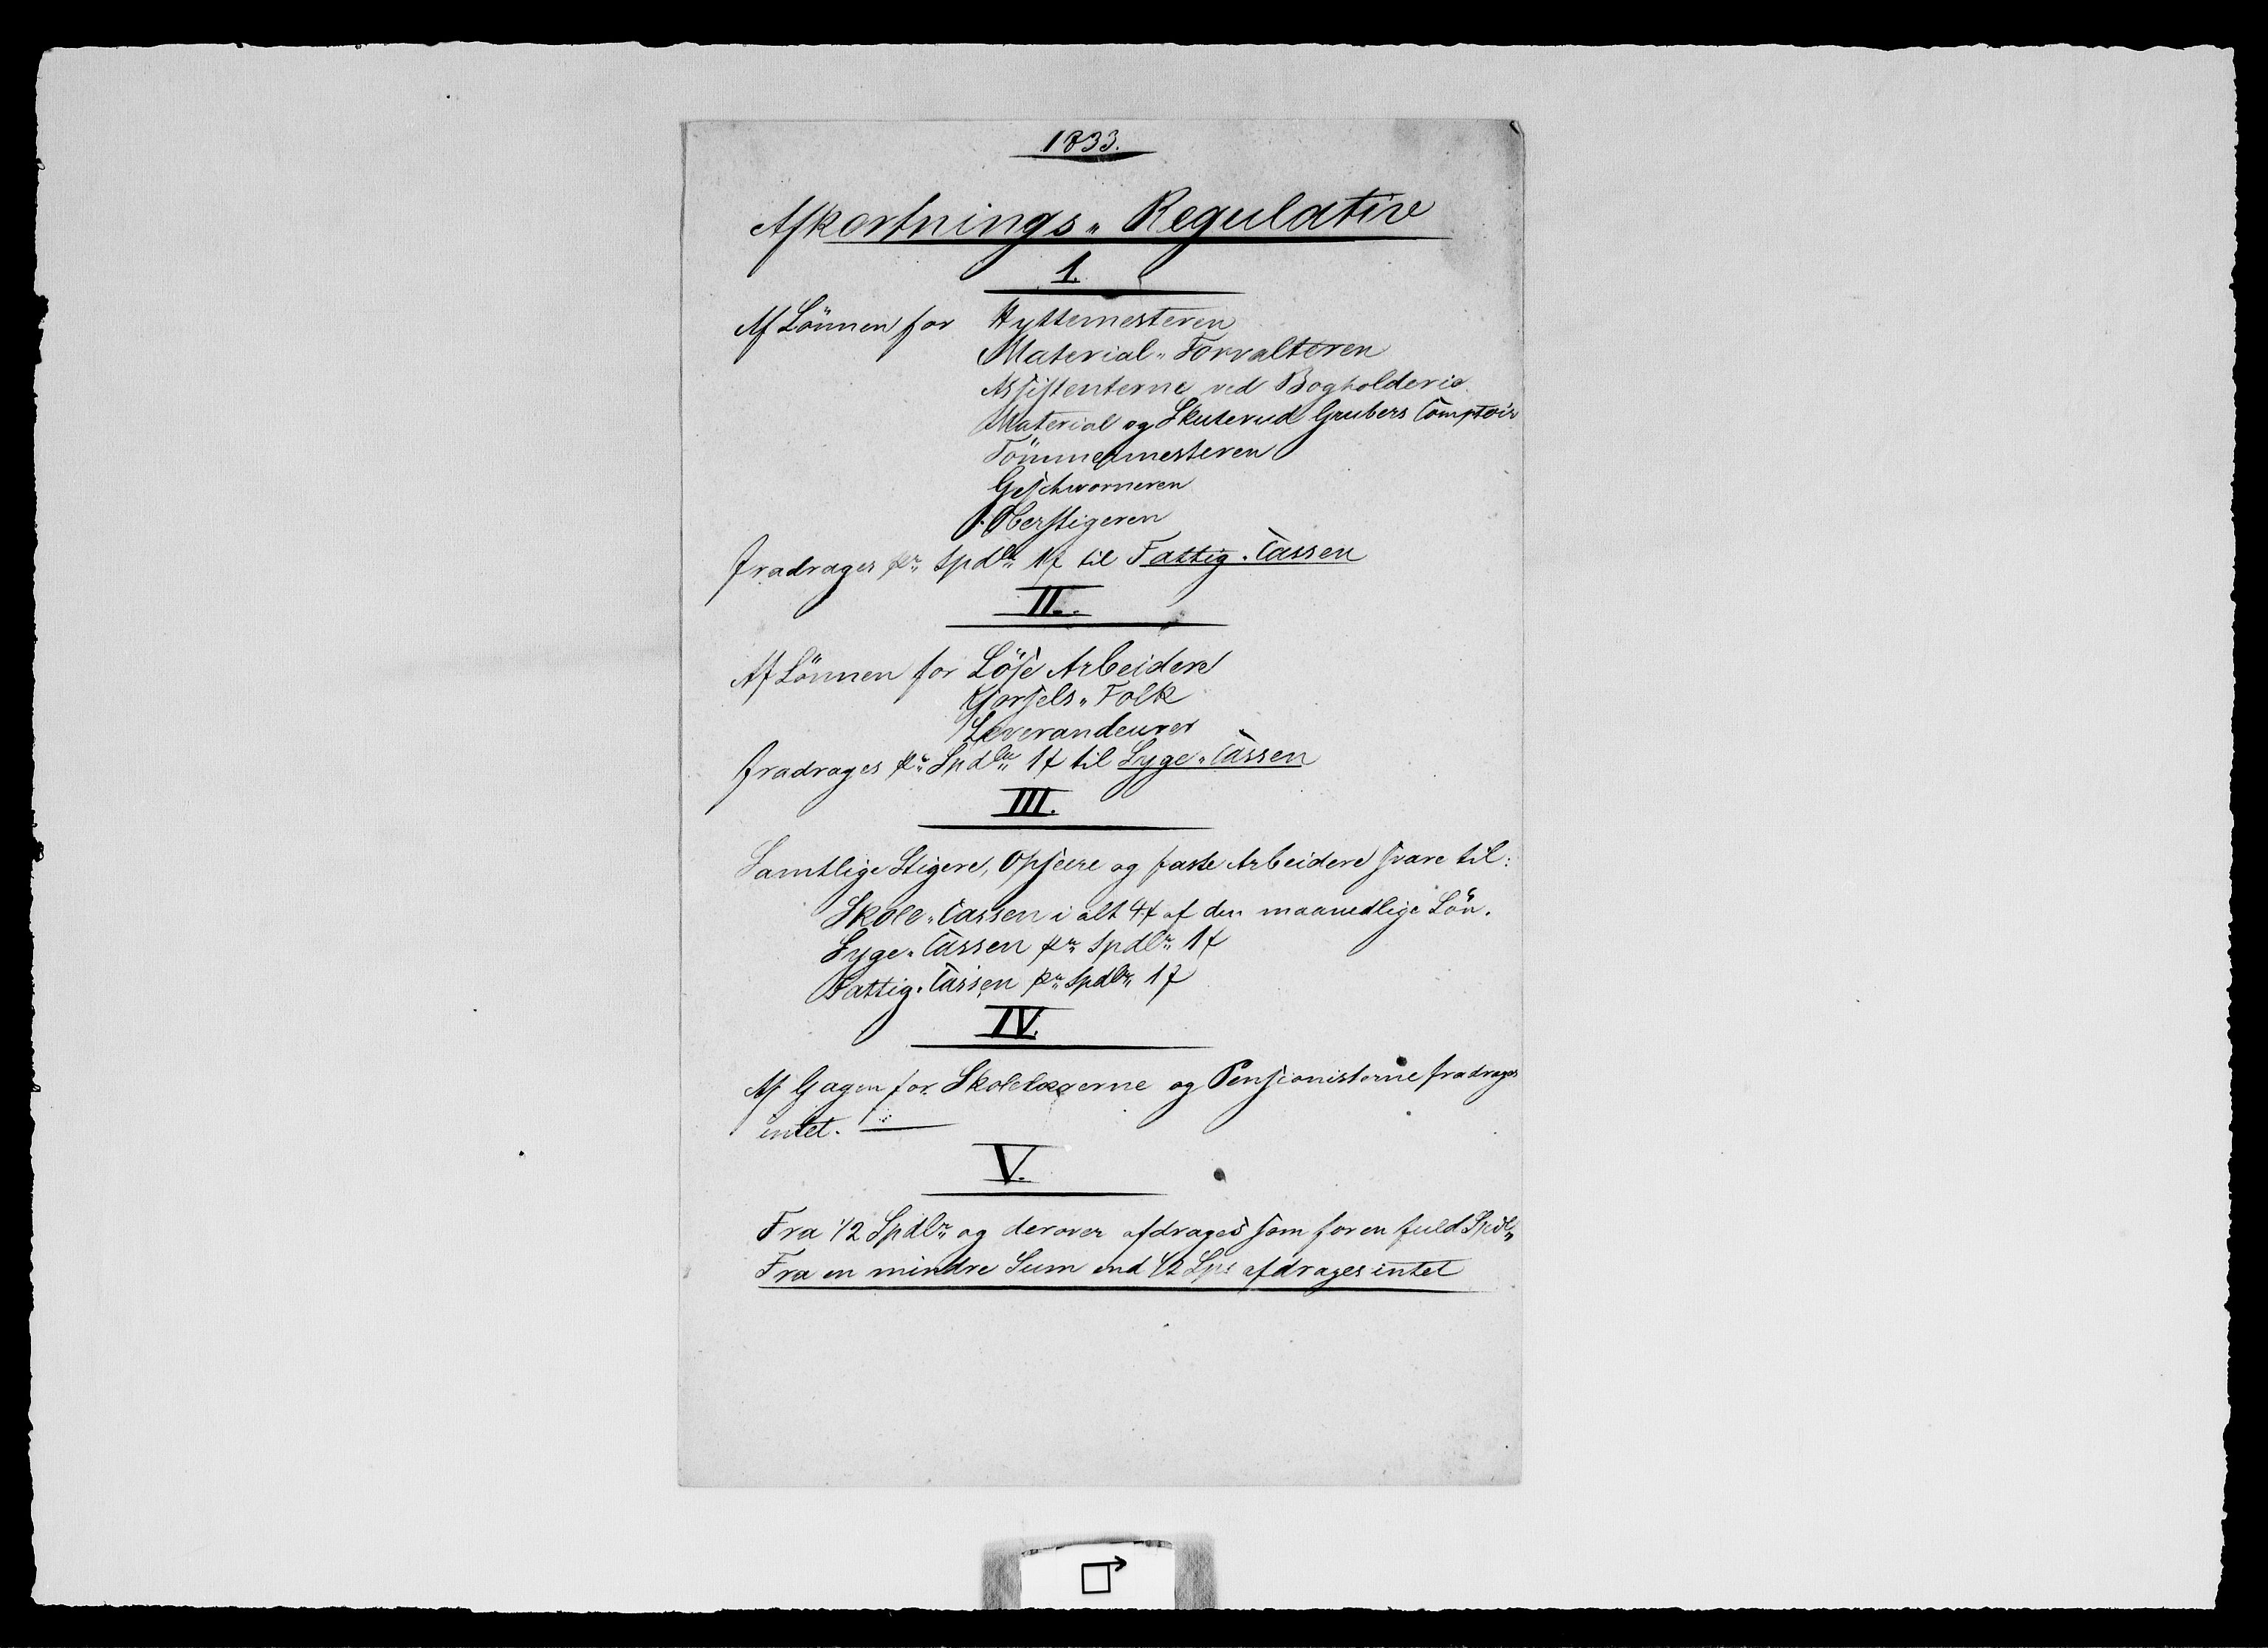 1833.
Afkortnings„ Regulativ
1.
Af Lönnen for Hyttemesteren
Material„ Forvalteren
Assistenterne ved Bogholderie.
Material og Skuterud Grubers Comptoir
Tömmermesteren
Geschworneren
Oberstigeren
fradrages pr. Spdlr. 1 ß til Fattig„ Cassen
II.
Af Lönnen for Löse Arbeidere
Kjørsels„ Folk
Leverandeurer
fradrages pr. Spdlr. 1 ß til Syge„ Cassen
III.
Samtlige Stigere, Opseere og faste Arbeidere svare til:
Skole„ Cassen i alt 4 ß af den maanedlige Lön.
Syge„ Cassen pr. Spdlr. 1 ß
Fattig„ Cassen pr. Spdlr. 1 ß
IV.
Af Gagen for Skolelærerne og Pensionisterne fradrages
intet.
V.
Fra 1/2 Spdlr. og derover afdrages som for en fuld Spdlr.
Fra en mindre Sum end 1/2 Sps afdrages intet